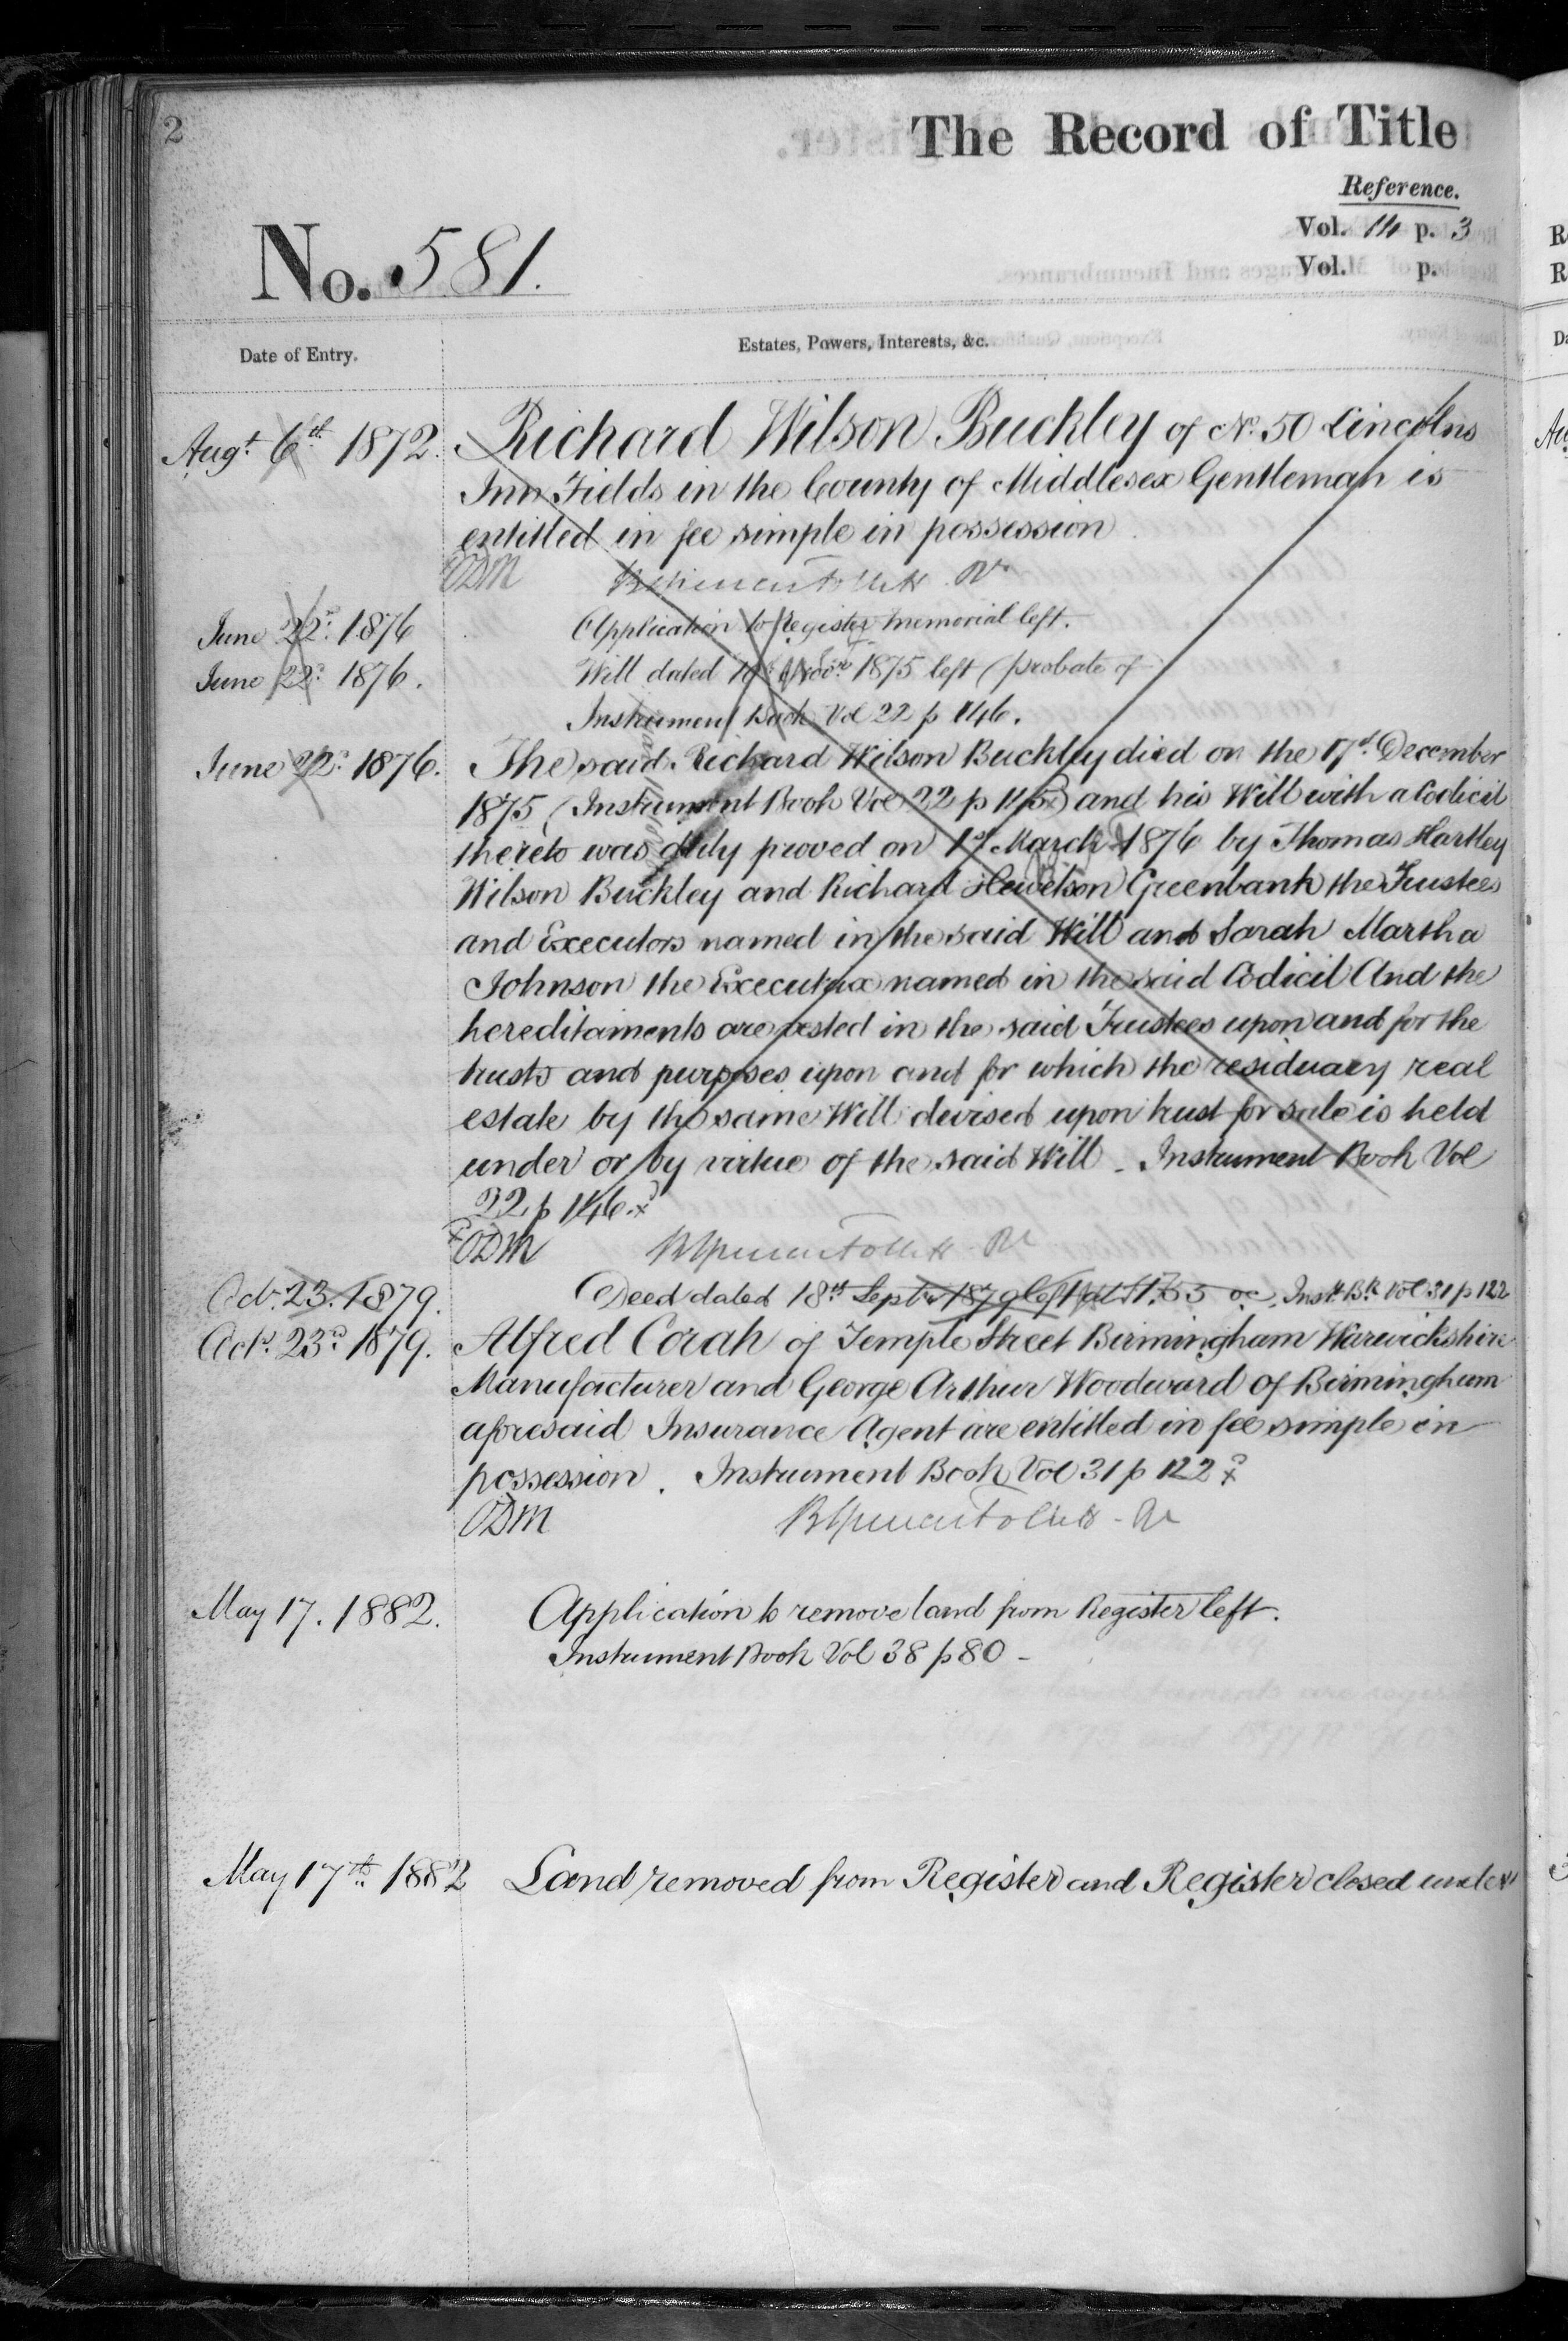 2
The Record of Title
Reference.
Vol. 14 p. 3
Vol. p.
No. 581.
Date of Entry.
Estates, Powers, Interests, &c.
Augt. 6th 1872. Richard Wilson Buckley of No. 50 Lincolns
Inn Fields in the County of Middlesex Gentleman is
entitled in fee simple in possession
ODM
June 22d. 1876 Application to Register memorial left.
June 22d. 1876. Will dated 1875 left (probate of
Instrument Book Vol 22 p 146.
June 22d. 1876. The said Richard Wilson Buckley died on the 17th December
1875 (Instrument Book Vol 22 p ) and his Will with a Codicil
thereto was duly proved on 1st March 1876 by Thomas Hartley
Wilson Buckley and Richard Hewetson Greenbank the Trustees
and Executors named in the said Will and Sarah Martha
Johnson the Executrix named in the said Codicil And the
hereditaments are vested in the said Trustees upon and for the
trusts and purposes upon and for which the residuary real
estate by the same Will devised upon trust for sale is held
under or by virtue of the said Will. Instrument Book Vol
22 p 146.
ODM
Oct. 23. 1879. Deed dated 18th Septr. 1879 left at 11.55 oc. Inst. Bk Vol 31 p 122
Oct. 23d 1879. Alfred Corah of Temple Street Birmingham Warwickshire
Manufacturer and George Arthur Woodward of Birmingham
aforesaid Insurance Agent are entitled in fee simple in
possession. Instrument Book Vol 31 p 122
ODM
May 17. 1882. Application to remove land from Register left.
Instrument Book Vol 38 p 80 -
May 17th. 1882 Land removed from Register and Register closed under